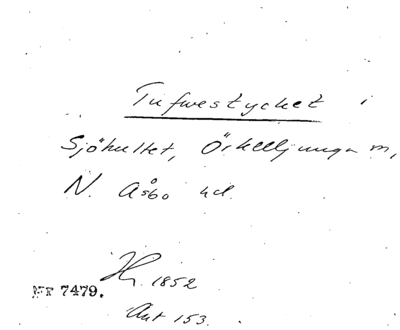 Tufvestycket i
Sjöhultet, Örkelljunga m,
N. Åsbo hd.
1852
NR 7479.
Akt 153.